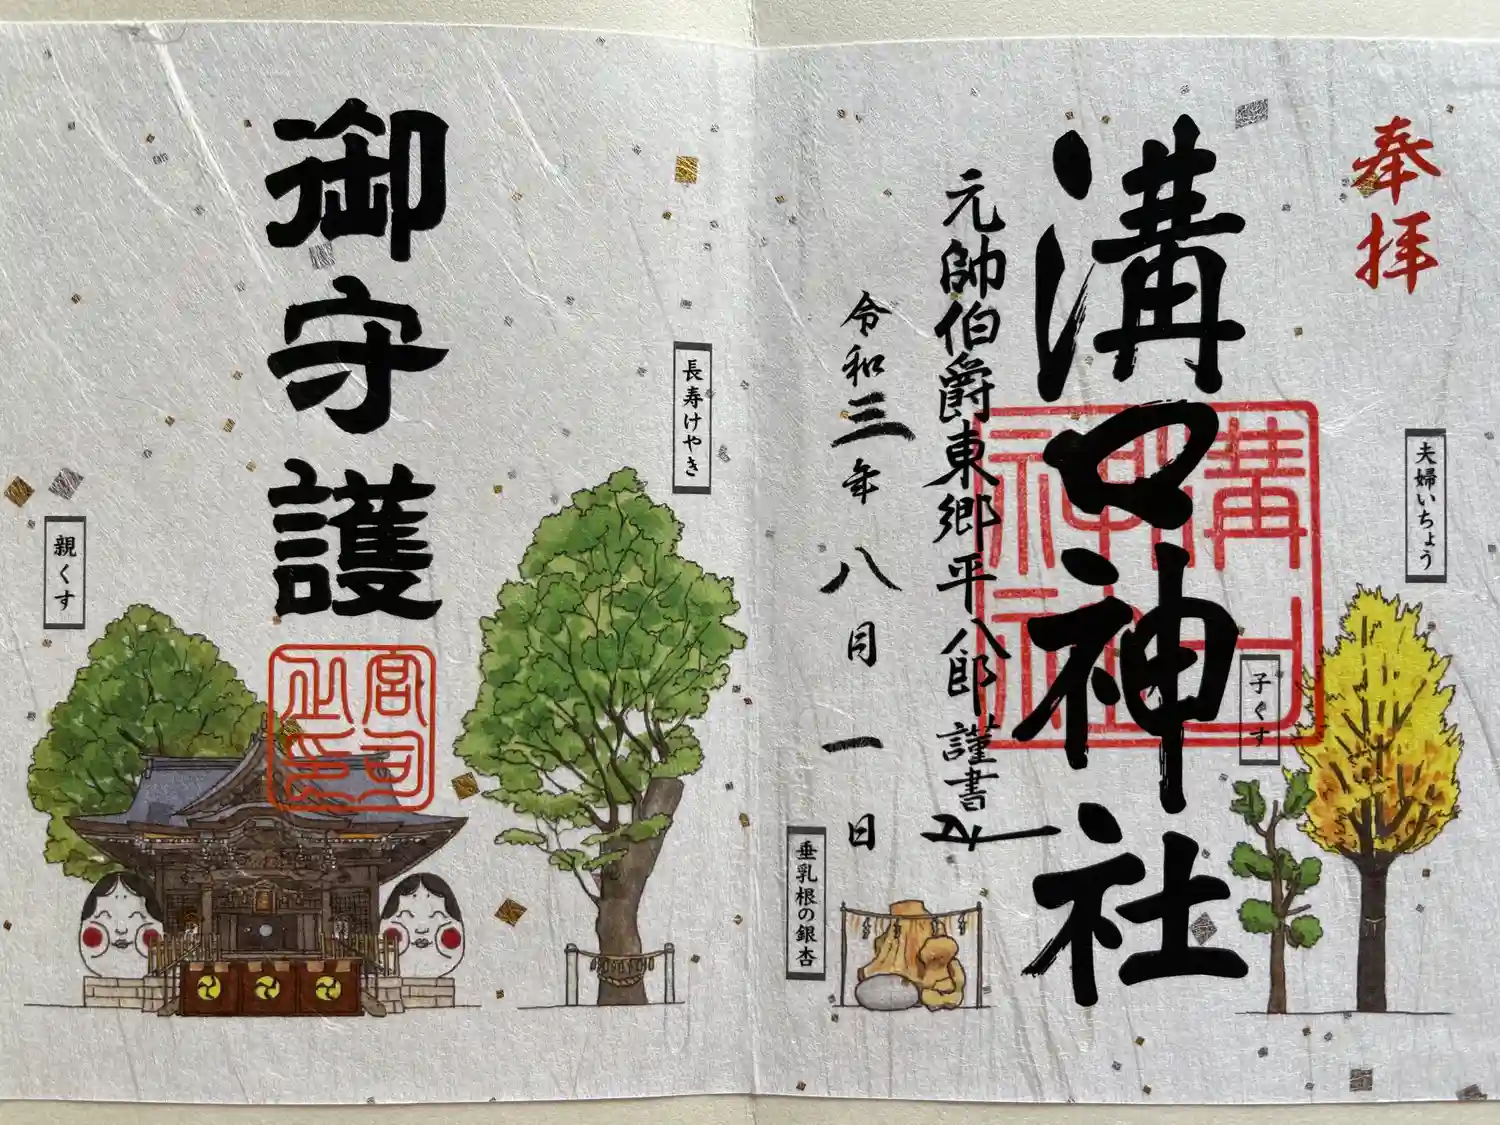 奉拝
溝口神社
元帥伯爵東郷平八郎謹書
令和三年八月一日
夫婦いちょう
子ぐす
垂乳根の銀杏
溝口
神社
御守護
長寿けやき
親くす
宮司
之印